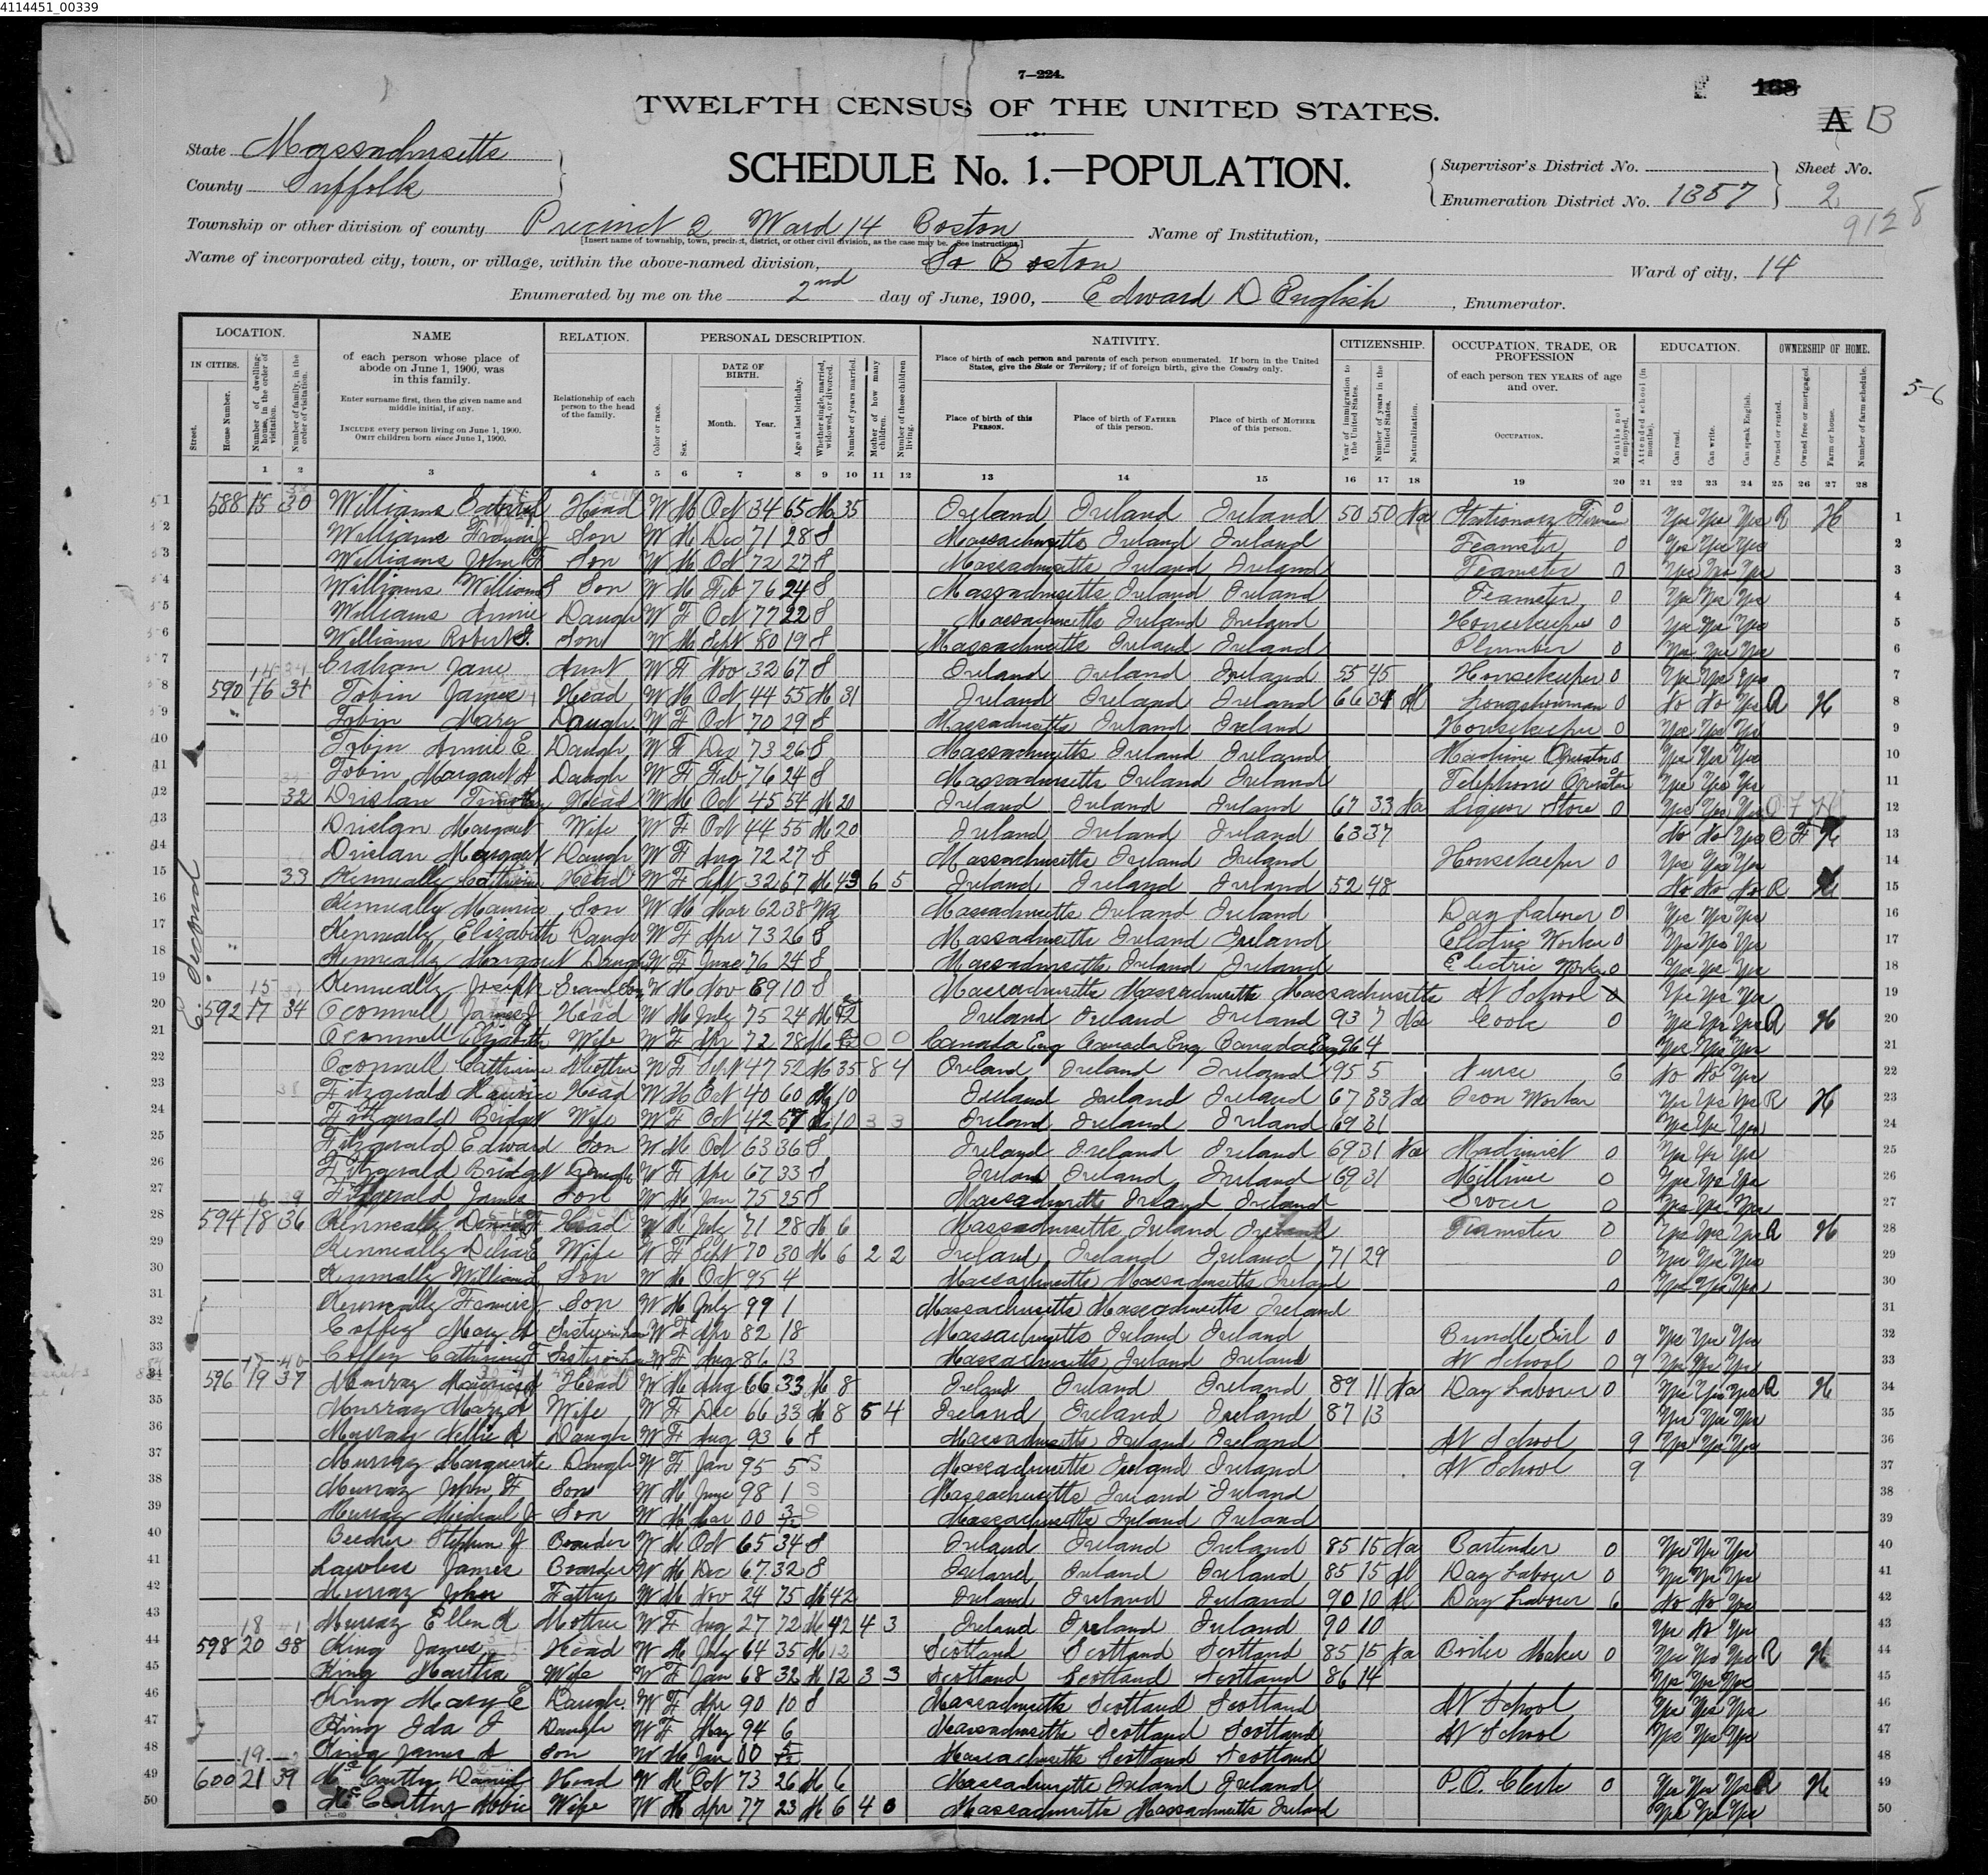 4114451_00339
7—224.
168
TWELFTH CENSUS OF THE UNITED STATES.
A B
State Massachusetts
County Suffolk
SCHEDULE No. 1.—POPULATION.
Supervisor's District No.
Enumeration District No. 1357
Sheet No.
2
9128
Township or other division of county Precinct 2 Ward 14 Boston
[Insert name of township, town, precinct, district, or other civil division, as the case may be. See instructions.]
Name of Institution,
Name of incorporated city, town, or village, within the above-named division, So Boston
Ward of city, 14
Enumerated by me on the 2nd day of June, 1900, Edward D English, Enumerator.
LOCATION. NAME RELATION. PERSONAL DESCRIPTION. NATIVITY. CITIZENSHIP. OCCUPATION, TRADE, OR PROFESSION EDUCATION. OWNERSHIP OF HOME.
IN CITIES.
Street.
House Number.
Number of dwelling-house, in the order of visitation.
Number of family, in the order of visitation.
of each person whose place of abode on June 1, 1900, was in this family.
Enter surname first, then the given name and middle initial, if any.
INCLUDE every person living on June 1, 1900.
OMIT children born since June 1, 1900.
Relationship of each person to the head of the family.
Color or race.
Sex.
DATE OF BIRTH.
Month. Year.
Age at last birthday.
Whether single, married, widowed, or divorced.
Number of years married.
Mother of how many children.
Number of these children living.
Place of birth of each person and parents of each person enumerated. If born in the United States, give the State or Territory; if of foreign birth, give the Country only.
Place of birth of this PERSON.
Place of birth of FATHER of this person.
Place of birth of MOTHER of this person.
Year of immigration to the United States.
Number of years in the United States.
Naturalization.
of each person TEN YEARS of age and over.
OCCUPATION.
Months not employed.
Attended school (in months).
Can read.
Can write.
Can speak English.
Owned or rented.
Owned free or mortgaged.
Farm or house.
Number of farm schedule.
3-6
1 2 3 4 5 6 7 8 9 10 11 12 13 14 15 16 17 18 19 20 21 22 23 24 25 26 27 28
E. Second
1 588 15 30 Williams Head W M Oct 34 65 M 35 Ireland Ireland Ireland 50 50 Na Stationary Fireman 0 Yes Yes Yes R H 1
2 Williams Francis J Son W M Dec 71 28 S Massachusetts Ireland Ireland Teamster 0 Yes Yes Yes 2
3 Williams John F Son W M Oct 72 27 S Massachusetts Ireland Ireland Teamster 0 Yes Yes Yes 3
4 Williams William S Son W M Feb 76 24 S Massachusetts Ireland Ireland Teamster 0 Yes Yes Yes 4
5 Williams Annie Daugh W F Oct 77 22 S Massachusetts Ireland Ireland Housekeeper 0 Yes Yes Yes 5
6 Williams Robert G. Son W M Sept 80 19 S Massachusetts Ireland Ireland Plumber 0 Yes Yes Yes 6
7 Graham Jane Aunt W F Nov 32 67 S Ireland Ireland Ireland 55 45 Housekeeper 0 Yes Yes Yes 7
8 590 16 31 Tobin James Head W M Oct 44 55 M 31 Ireland Ireland Ireland 66 34 Al Longshoreman 0 No No Yes R H 8
9 Tobin Mary Daugh W F Oct 70 29 S Massachusetts Ireland Ireland Housekeeper 0 Yes Yes Yes 9
10 Tobin Annie E Daugh W F Dec 73 26 S Massachusetts Ireland Ireland Machine Operator 0 Yes Yes Yes 10
11 Tobin Margaret A Daugh W F Feb 76 24 S Massachusetts Ireland Ireland Telephone Operator 0 Yes Yes Yes 11
12 32 Drislan Timothy Head W M Oct 45 54 M 20 Ireland Ireland Ireland 67 33 Na Liquor Store 0 Yes Yes Yes O F H 12
13 Drislan Margaret Wife W F Oct 44 55 M 20 Ireland Ireland Ireland 63 37 No No Yes O F H 13
14 Drislan Margaret Daugh W F Aug 72 27 S Massachusetts Ireland Ireland Housekeeper 0 Yes Yes Yes 14
15 33 Kenneally Cathrine Head W F Sept 32 67 M 43 6 5 Ireland Ireland Ireland 52 48 No No No R H 15
16 Kenneally Maurice Son W M Mar 62 38 Wd Massachusetts Ireland Ireland Day Laborer 0 Yes Yes Yes 16
17 Kenneally Elizabeth Daugh W F Apr 73 26 S Massachusetts Ireland Ireland Electric Worker 0 Yes Yes Yes 17
18 Kenneally Margaret Daugh W F June 76 24 S Massachusetts Ireland Ireland Electric Worker 0 Yes Yes Yes 18
19 Kenneally Joseph Grandson W M Nov 89 10 S Massachusetts Massachusetts Massachusetts At School 0 Yes Yes Yes 19
20 592 17 34 Oconnell James J Head W M July 75 24 M Ireland Ireland Ireland 93 7 Na Cook 0 Yes Yes Yes R H 20
21 Oconnell Elizabeth Wife W F Apr 72 28 M 0 0 Canada Eng Canada Eng Canada Eng 96 4 Yes Yes Yes 21
22 Oconnell Cathrine Mother W F Sept 47 52 M 35 8 4 Ireland Ireland Ireland 95 5 Nurse 6 No No Yes 22
23 Fitzgerald Maurice Head W M Oct 40 60 M 10 Ireland Ireland Ireland 67 33 Na Iron Worker Yes Yes Yes R H 23
24 Fitzgerald Bridget Wife W F Oct 42 57 M 10 3 3 Ireland Ireland Ireland 69 31 Yes Yes Yes 24
25 Fitzgerald Edward Son W M Oct 63 36 S Ireland Ireland Ireland 69 31 Na Machinist 0 Yes Yes Yes 25
26 Fitzgerald Bridget Daugh W F Apr 67 33 S Ireland Ireland Ireland 69 31 Milliner 0 Yes Yes Yes 26
27 Fitzgerald James Son W M Jan 75 25 S Massachusetts Ireland Ireland Grocer 0 Yes Yes Yes 27
28 594 18 36 Kenneally Head W M July 71 28 M 6 Massachusetts Ireland Ireland Teamster 0 Yes Yes Yes R H 28
29 Kenneally Delia E Wife W F Sept 70 30 M 6 2 2 Ireland Ireland Ireland 71 29 0 Yes Yes Yes 29
30 Kenneally William L Son W M Oct 95 4 Massachusetts Massachusetts Ireland 0 Yes Yes Yes 30
31 Kenneally Francis J Son W M July 99 1 Massachusetts Massachusetts Ireland 31
32 Coffey Mary A Sister in Law W F Apr 82 18 Massachusetts Ireland Ireland Bundle Girl 0 Yes Yes Yes 32
33 Coffey Cathrine F Sister in Law W F Aug 86 13 Massachusetts Ireland Ireland At School 0 9 Yes Yes Yes 33
34 596 19 37 Murray Maurice A Head W M Aug 66 33 M 8 Ireland Ireland Ireland 89 11 Na Day Laborer 0 Yes Yes Yes R H 34
35 Murray Mary A Wife W F Dec 66 33 M 8 5 4 Ireland Ireland Ireland 87 13 Yes Yes Yes 35
36 Murray Nellie A Daugh W F Aug 93 6 S Massachusetts Ireland Ireland At School 9 Yes Yes Yes 36
37 Murray Marguerite Daugh W F Jan 95 5 S Massachusetts Ireland Ireland At School 9 37
38 Murray John F Son W M June 98 1 S Massachusetts Ireland Ireland 38
39 Murray Michael J Son W M Mar 00 3/12 S Massachusetts Ireland Ireland 39
40 Beecher Stephen J Boarder W M Oct 65 34 S Ireland Ireland Ireland 85 15 Na Bartender 0 Yes Yes Yes 40
41 Lawless James Boarder W M Dec 67 32 S Ireland Ireland Ireland 85 15 Al Day Laborer 0 Yes Yes Yes 41
42 Murray John Father W M Nov 24 75 M 42 Ireland Ireland Ireland 90 10 Al Day Laborer 6 No No Yes 42
43 Murray Ellen A Mother W F Aug 27 72 M 42 4 3 Ireland Ireland Ireland 90 10 Yes No Yes 43
44 598 20 38 King James Head W M July 64 35 M 12 Scotland Scotland Scotland 85 15 Na Boiler Maker 0 Yes Yes Yes R H 44
45 King Martha Wife W F Jan 68 32 M 12 3 3 Scotland Scotland Scotland 86 14 Yes Yes Yes 45
46 King Mary E Daugh. W F Apr 90 10 S Massachusetts Scotland Scotland At School Yes Yes Yes 46
47 King Ida J Daugh W F May 94 6 Massachusetts Scotland Scotland At School Yes Yes Yes 47
48 King James A Son W M Jan 00 5/12 Massachusetts Scotland Scotland 48
49 600 21 39 McCarthy Daniel Head W M Oct 73 26 M 6 Massachusetts Ireland Ireland P.O. Clerk 0 Yes Yes Yes R H 49
50 McCarthy Abbie Wife W M Apr 77 23 M 6 4 0 Massachusetts Massachusetts Ireland Yes Yes Yes 50